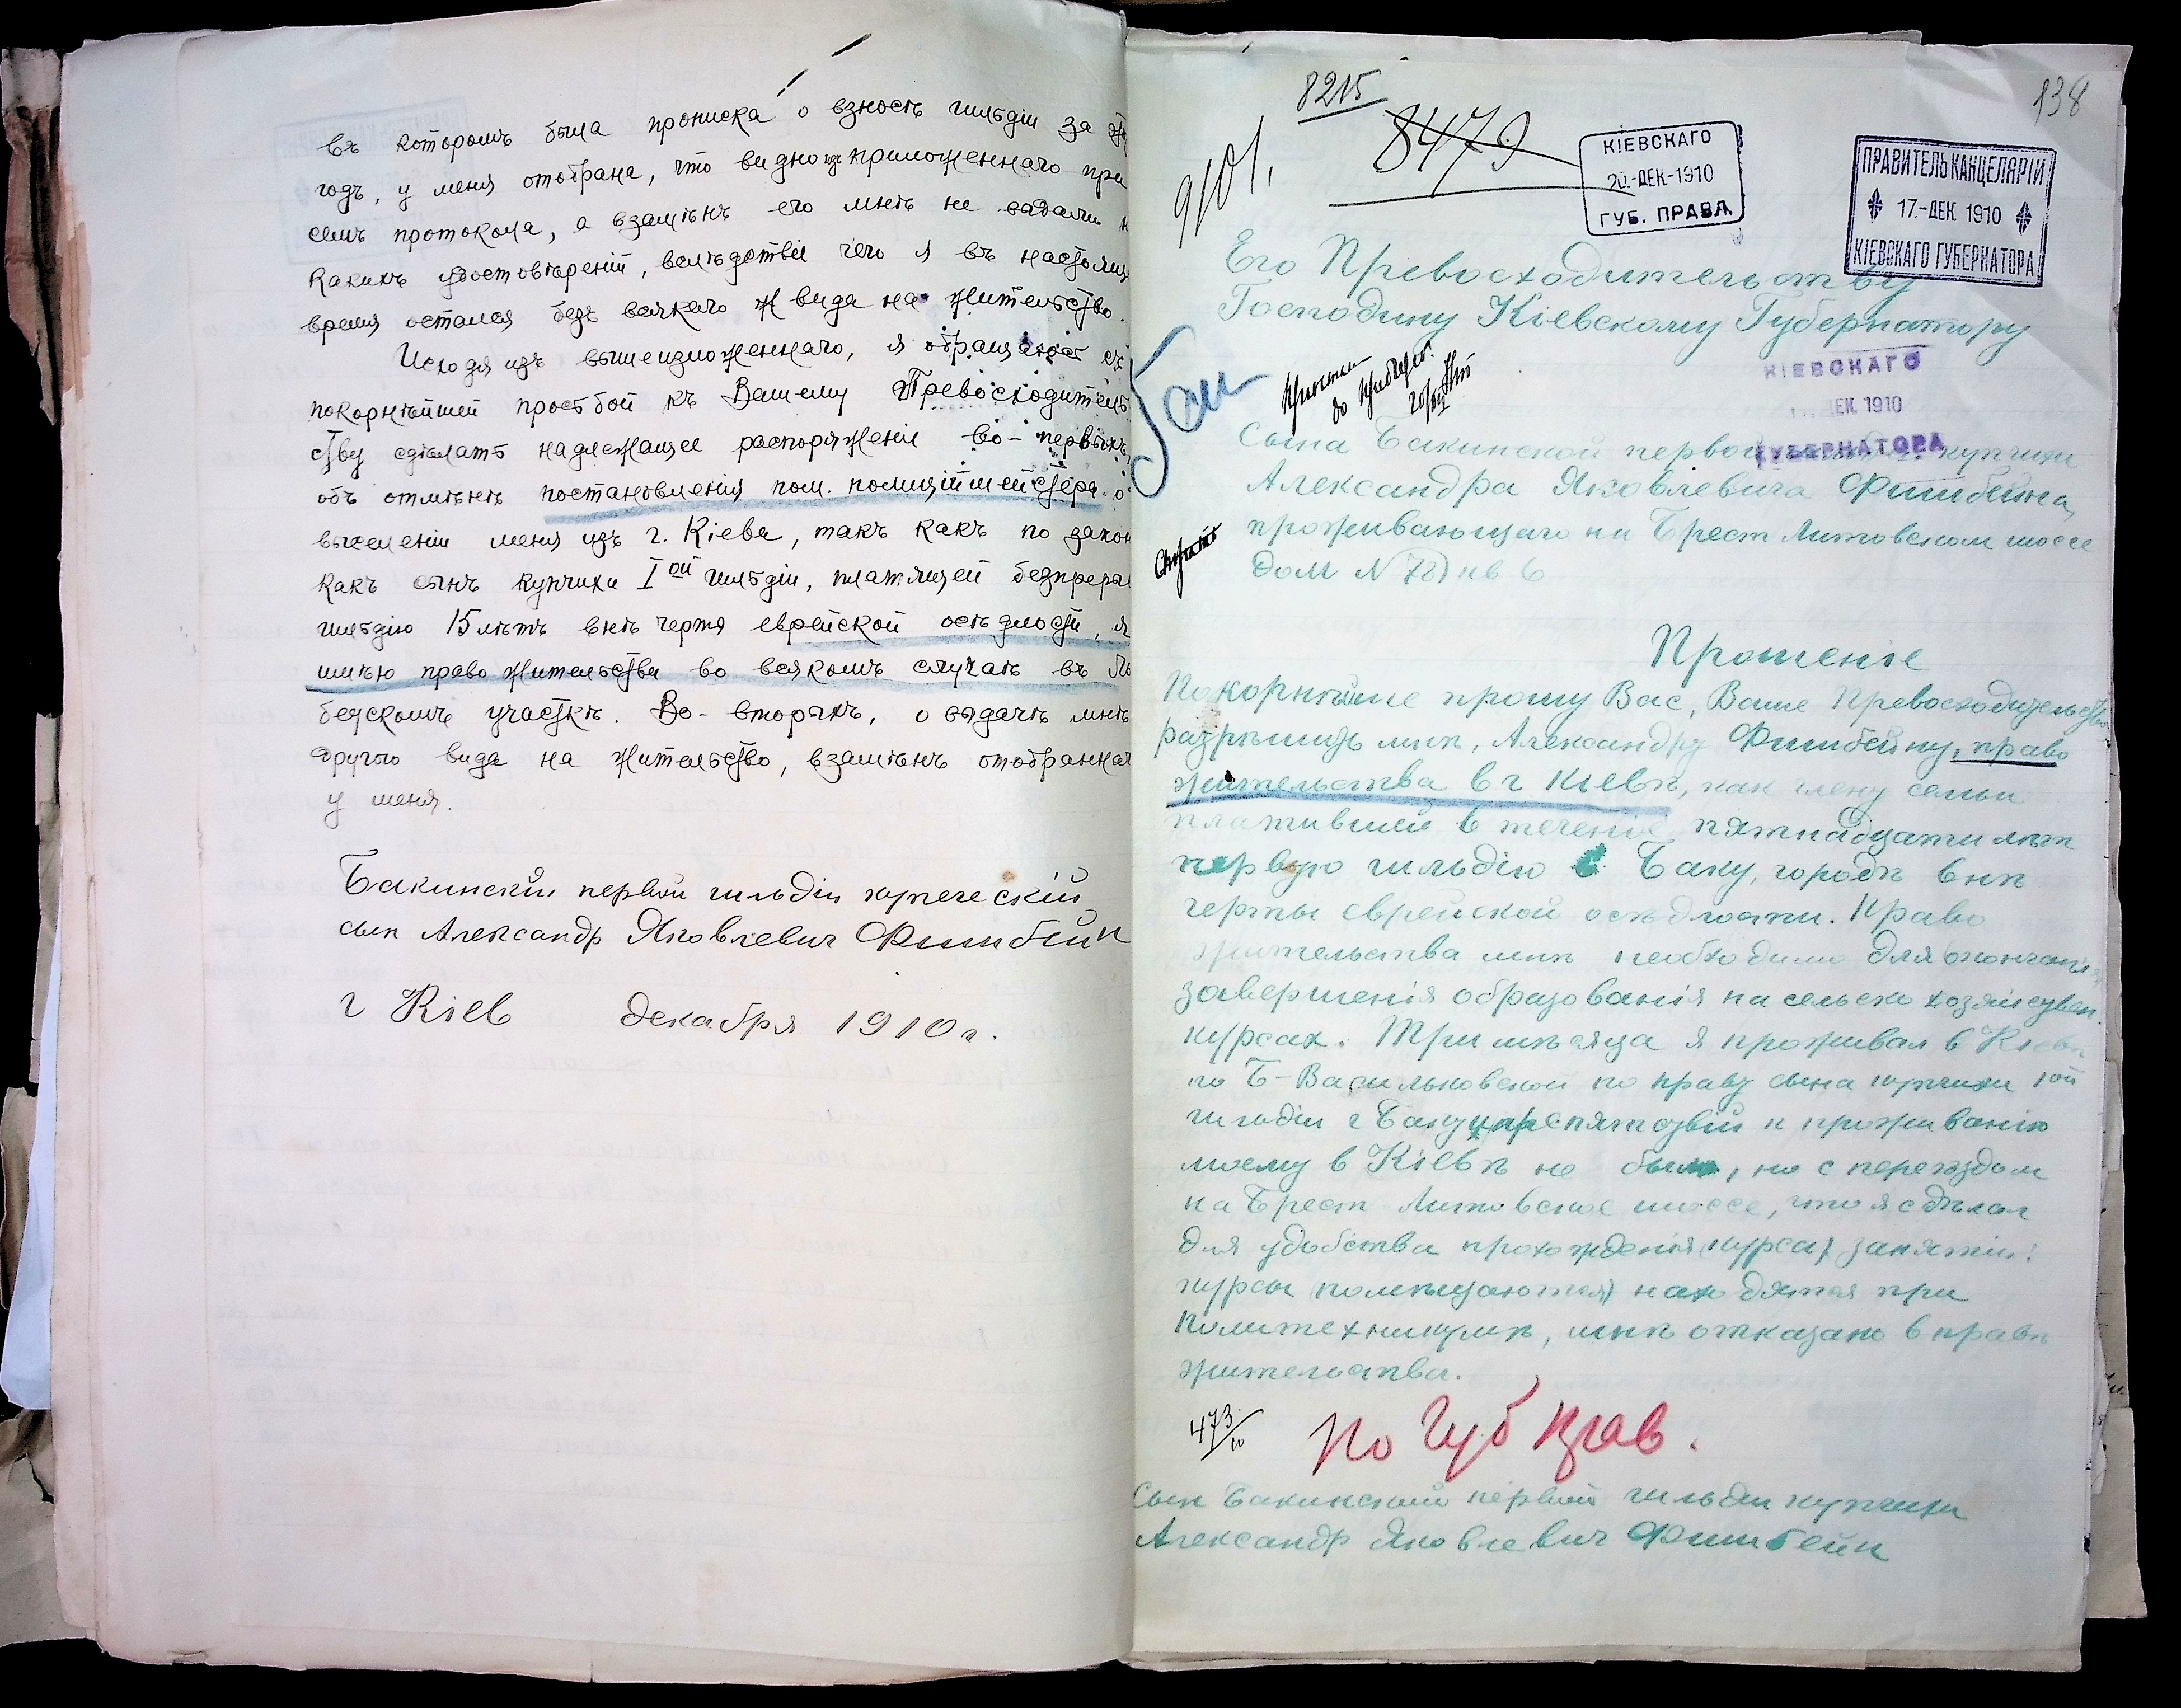 въ которомъ была прописка о взносѣ гильдіи за
годъ, у меня отобрана, что видно изъ приложеннаго при
семъ протокола, а взамѣнъ его мнѣ не выдали
какихъ удостовѣреній, вслѣдствіе чего я въ настоящ
время остался безъ всякаго вида на жительство.
Исходя изъ вышеизложеннаго, я обращаюсь съ
покорнѣйшей просьбой къ Вашему Превосходитель
ству сдѣлать надлежащее распоряженіе во-первыхъ,
объ отмѣнѣ постановленія пом. полиціймейстера о
выселеніи меня изъ г. Кіева, такъ какъ по закон
какъ сынъ купчихи Iой гильдіи, платящей безпреры
гильдію 15 лѣтъ внѣ черты еврейской осѣдлости, я
имѣю право жительства во всякомъ случаѣ въ Лы
бедскомъ участкѣ. Во-вторыхъ, о выдачѣ мнѣ
другого вида на жительство, взамѣнъ отобраннаг
у меня.
Бакинскій первой гильдіи купеческій
сын Александр Яковлевич Фишбейн
г Кіев декабря 1910 г.
138
8215
8479
9101.
КІЕВСКАГО
20.-ДЕК-1910
ГУБ. ПРАВЛ.
ПРАВИТЕЛЬ КАНЦЕЛЯРІИ
17.-ДЕК. 1910
КІЕВСКАГО ГУБЕРНАТОРА
Его Превосходительству
Господину Кіевскому Губернатору
КІЕВСКАГО
ДЕК. 1910
ГУБЕРНАТОРА
Сына Бакинской первой купчихи
Александра Яковлевича Фишбейна,
проживающаго на Брест Литовском шоссе
дом N кв 6
Прошеніе
Покорнѣйше прошу Вас, Ваше Превосходительство
разрѣшить мнѣ, Александру Фишбейну, право
жительства в г Кіевѣ, как члену семьи
платившей в теченіе пятнадцати лѣт
первую гильдію в Баку, городѣ внѣ
черты еврейской осѣдлости. Право
жительства мнѣ необходимо для окончанія
завершенія образованія на сельско хозяйствен.
курсах. Три мѣсяца я проживал в Кіевѣ
по Б-Васильковской по праву сына купчихи 1ой
гильдіи г Баку и препятствій к проживанію
моему в Кіевѣ не было, но с переѣздом
на Брест-Литовское шоссе, что я сдѣлал
для удобства прохожденія (курса) занятій:
курсы (помѣщаются) находятся при
Политехникумѣ, мнѣ отказано в правѣ
жительства.
473/10
По Губ Прав.
Сын Бакинской первой гильдіи купчихи
Александр Яковлевич Фишбейн